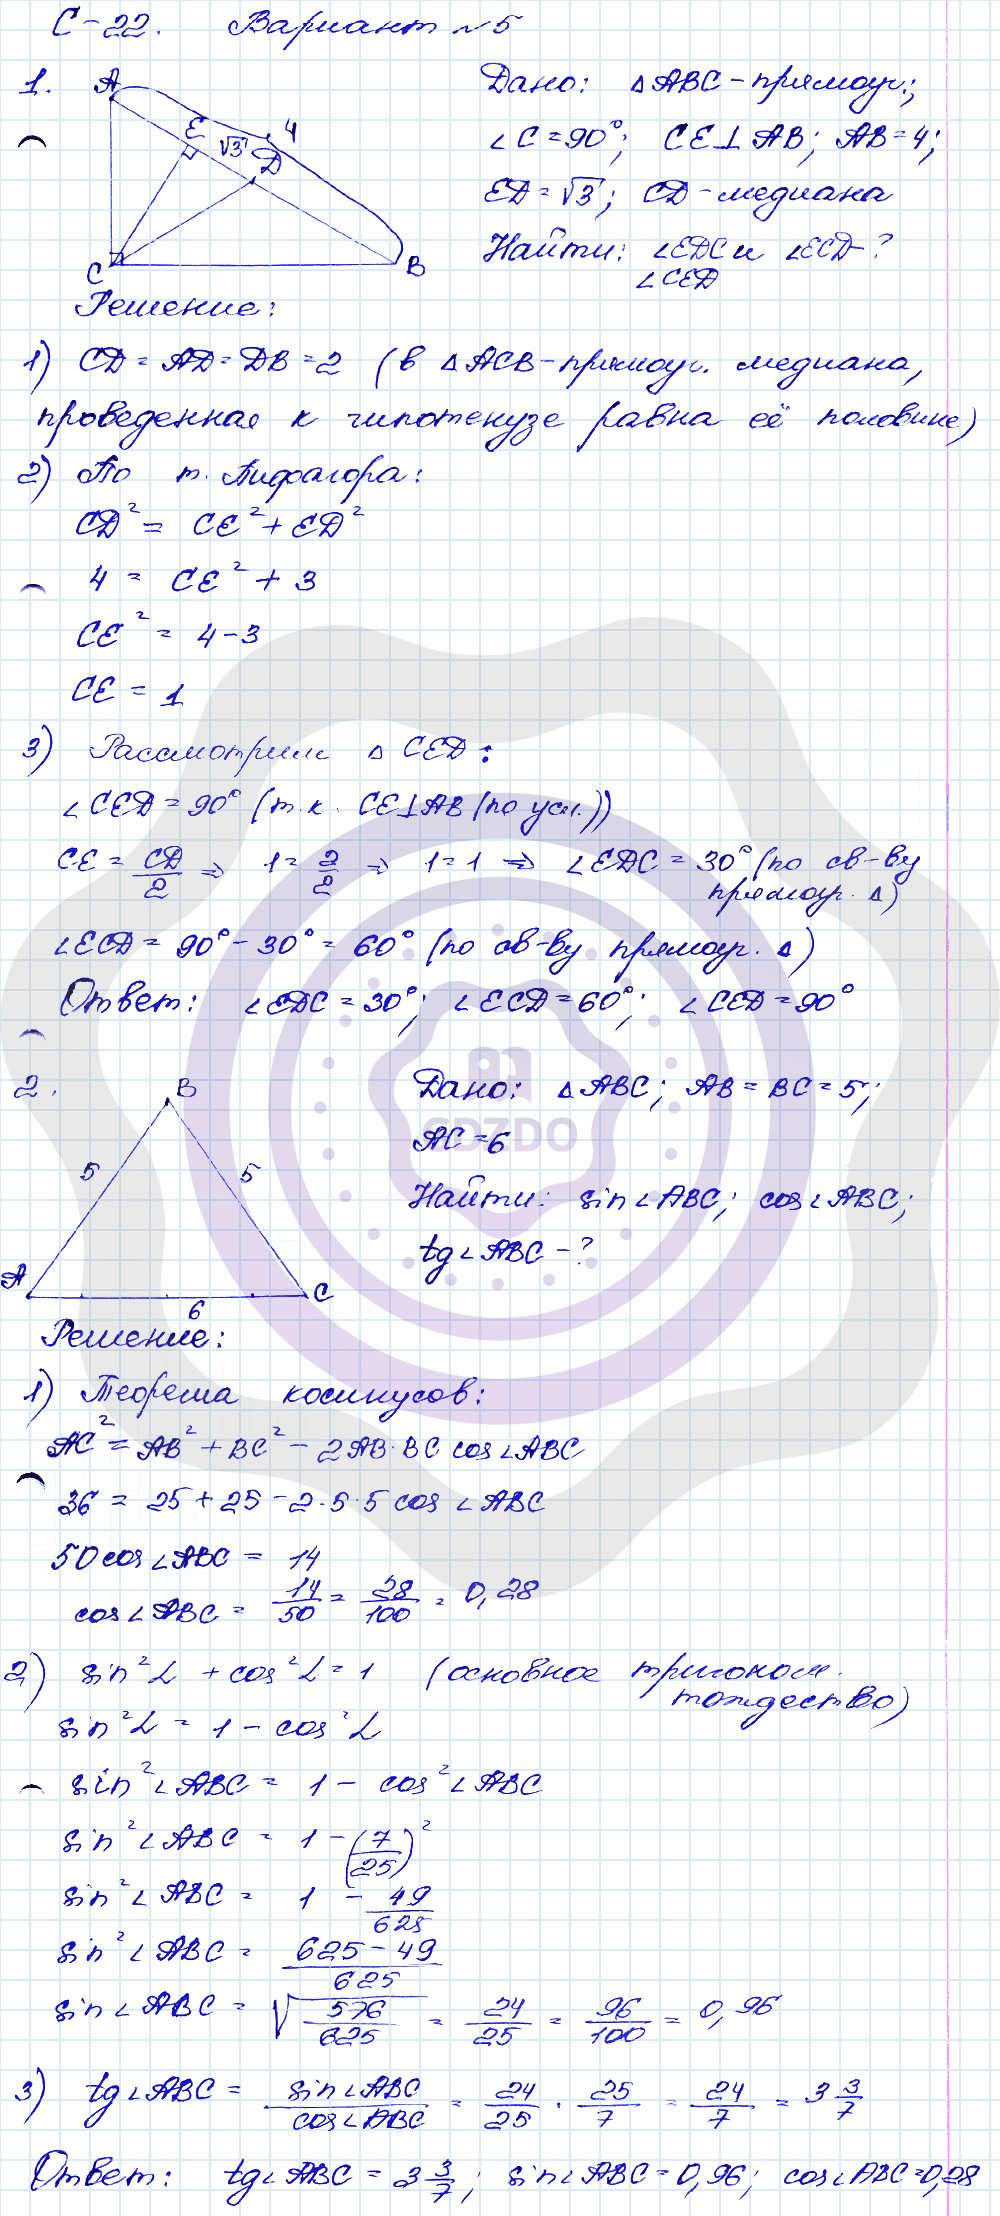 С-22. Вариант №5
1. A E √3 D 4 C B
Дано: △ABC-прямоуг.;
∠C=90°; CE⊥AB; AB=4;
ED=√3; CD-медиана
Найти: ∠EDC и ∠ECD-?
∠CED
Решение:
1) CD=AD=DB=2 (в △ACB-прямоуг. медиана,
проведенная к гипотенузе равна её половине)
2) По т. Пифагора:
CD² = CE²+ED²
4 = CE² + 3
CE² = 4-3
CE = 1
3) Рассмотрим △ CED:
∠CED=90° (т.к. CE⊥AB (по усл.))
CE = CD/2 ⇒ 1 = 2/2 ⇒ 1=1 ⇒ ∠EDC = 30° (по св-ву
прямоуг. △)
∠ECD= 90°-30°= 60° (по св-ву прямоуг. △)
Ответ: ∠EDC=30°; ∠ECD=60°; ∠CED=90°
2. B 5 5 A 6 C
Дано: △ABC; AB=BC=5;
AC=6
GDZDO
Найти: sin∠ABC; cos∠ABC;
tg∠ABC-?
Решение:
1) Теорема косинусов:
AC²=AB²+BC²-2AB·BC cos∠ABC
36 = 25+25-2·5·5 cos ∠ABC
50cos∠ABC = 14
cos∠ABC = 14/50 = 28/100 = 0,28
2) sin²L + cos²L=1 (основное тригоном.
тождество)
sin²L = 1-cos²L
sin²∠ABC = 1- cos²∠ABC
sin²∠ABC = 1-(7/25)²
sin²∠ABC = 1 - 49/625
sin²∠ABC = 625-49/625
sin∠ABC = √576/625 = 24/25 = 96/100 = 0,96
3) tg∠ABC = sin∠ABC/cos∠ABC = 24/25 · 25/7 = 24/7 = 3 3/7
Ответ: tg∠ABC = 3 3/7; sin∠ABC=0,96; cos∠ABC=0,28